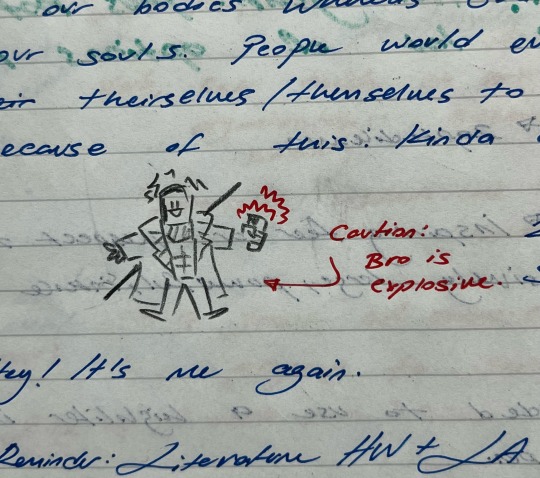 our bodies
our souls. People would en
theirselves/themselves to
ecause of this. Kinda
Caution:
Bro is
explosive.
Hey! It's me again.
Reminder: Literature HW + LA